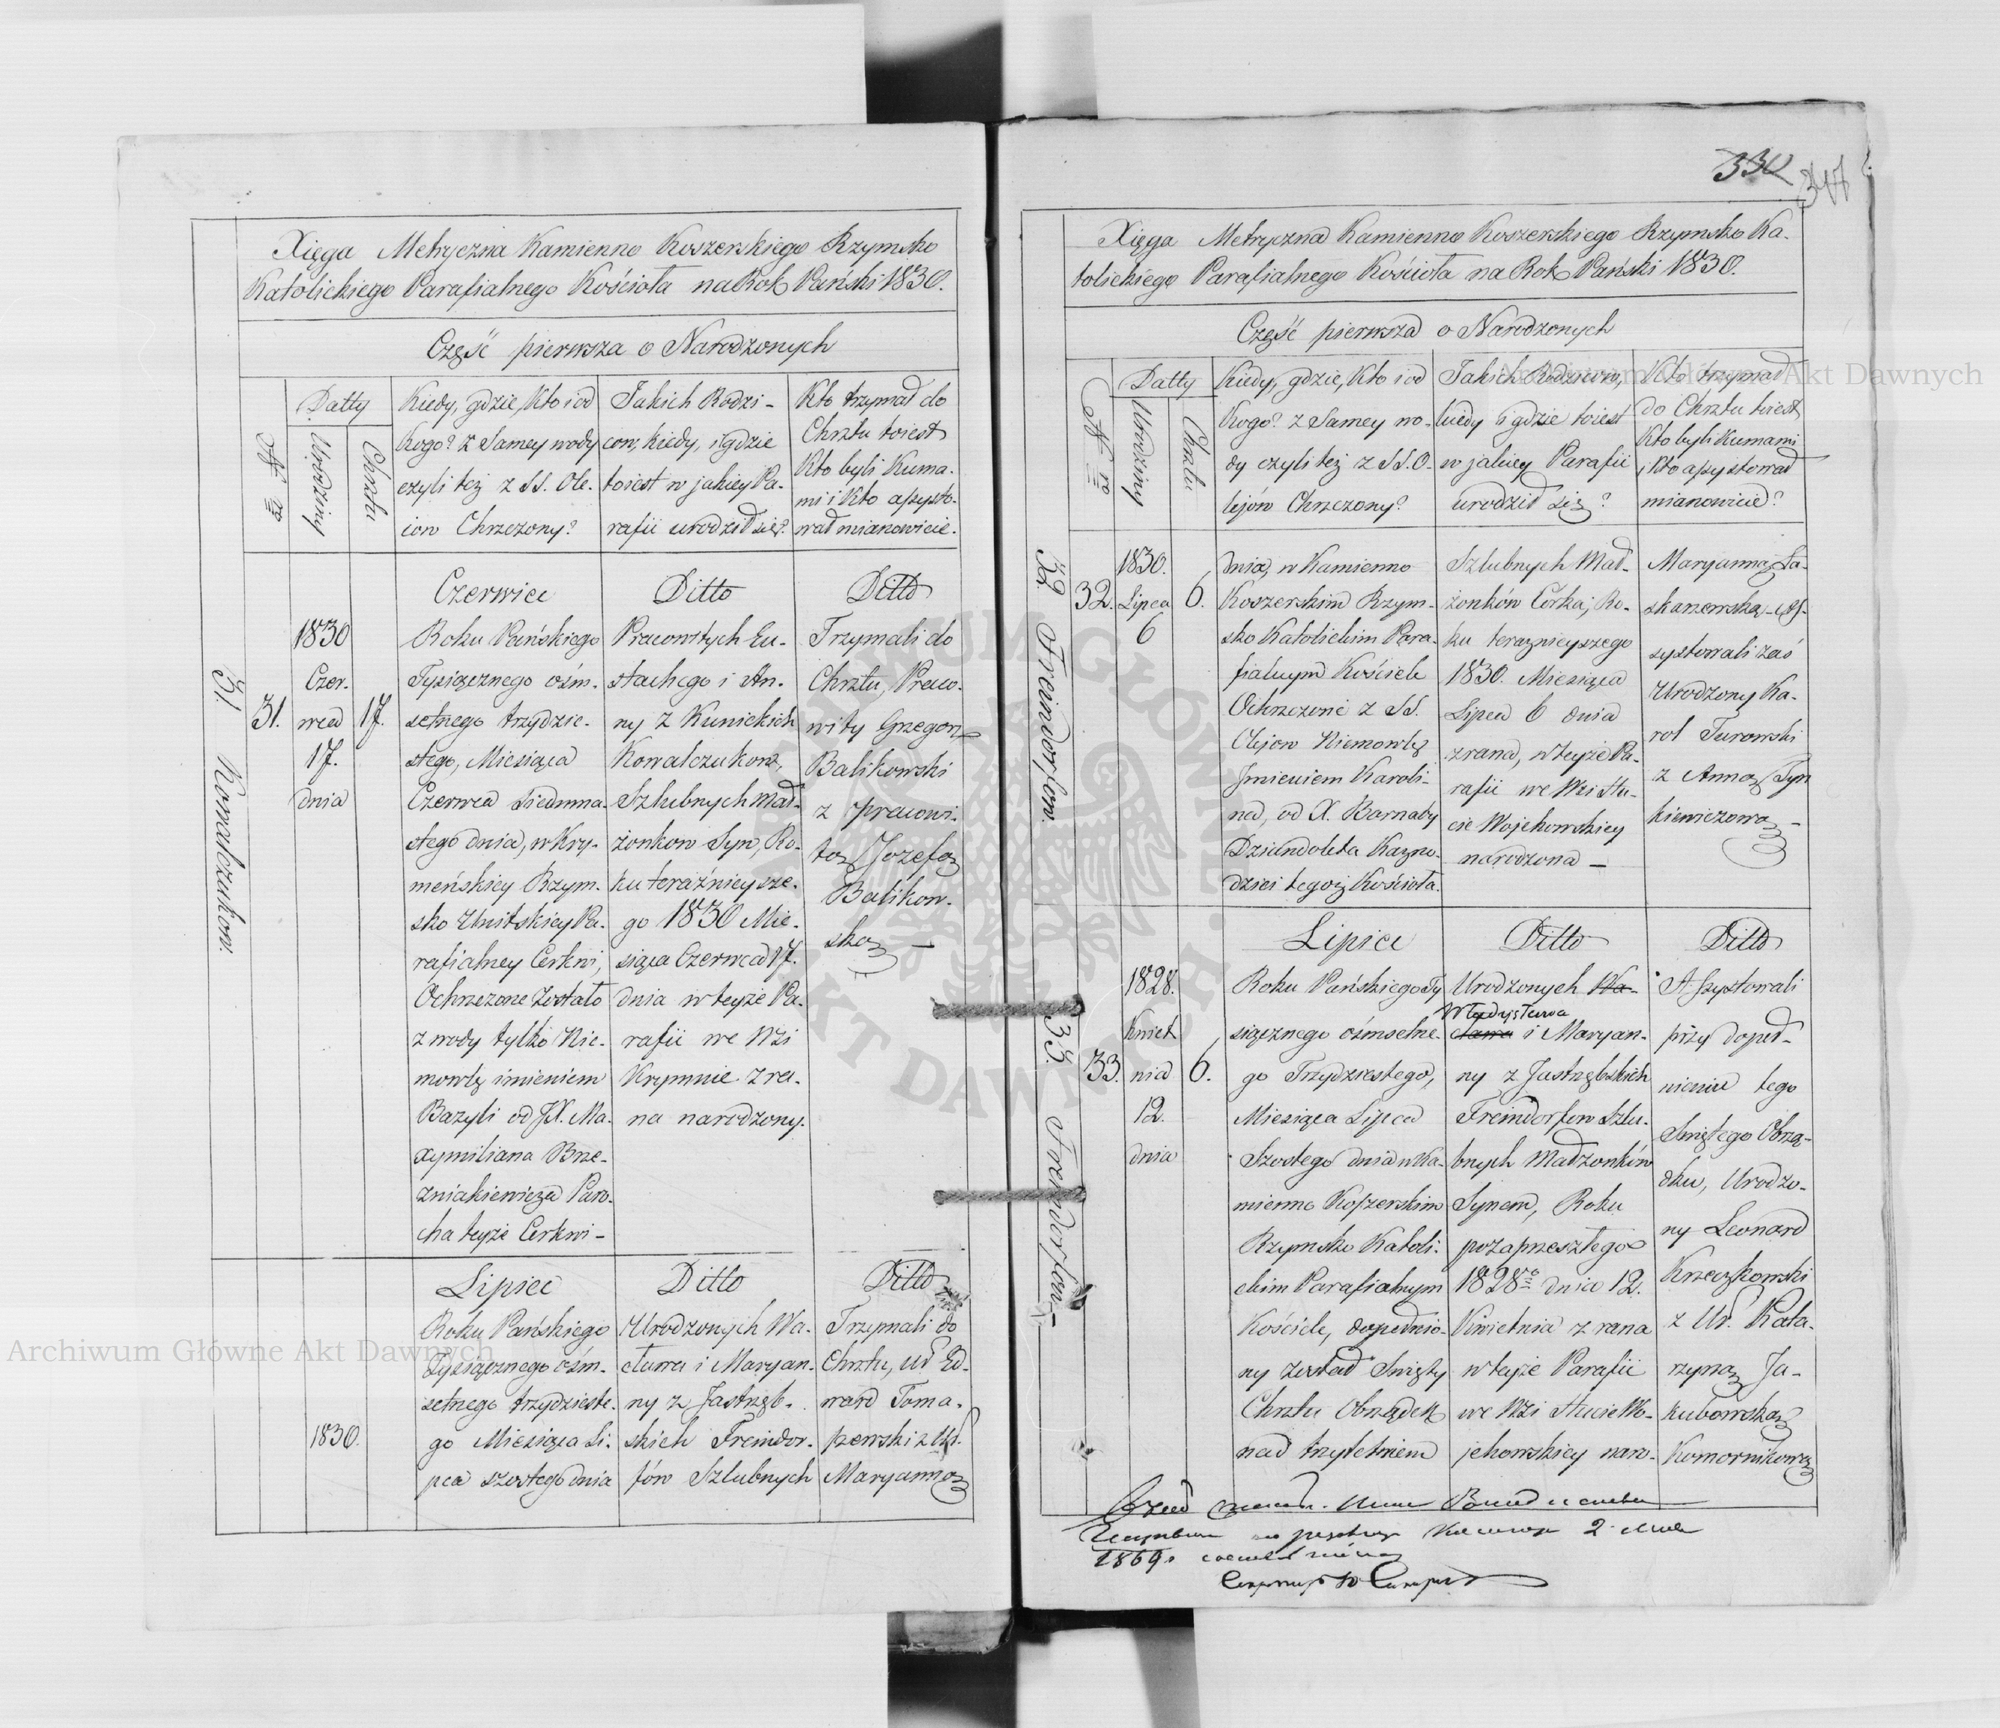 330
347
Xięga Metryczna Kamienno Koszerskiego Rzymsko
Katolickiego Parafialnego Kościoła na Rok Pański 1830.
Część pierwsza o Narodzonych
Nro
Datty
Urodziny
Chrztu
Kiedy, gdzie, Kto i od
Kogo? z Samey wody
czyli też z SS. Ole-
iow Chrzczony?
Jakich Rodzi-
cow, kiedy, i gdzie
toiest w jakiey Pa-
rafii urodził się?
Kto trzymał do
Chrztu toiest
Kto byli Kuma-
mi i Kto assysto-
wał mianowicie.
31. Kowalczukow.
31.
1830
Czer-
wca
17.
dnia
17.
Czerwiec
Roku Pańskiego
Tysiącznego ośm-
setnego trzydzie-
stego, Miesiąca
Czerwca Siedmna-
stego dnia, w Kry-
meńskiey Rzym-
sko Unitskiey Pa-
rafialney Cerkwi,
Ochrzczone zostało
z wody tylko Nie-
mowlę imieniem
Bazyli od JX. Ma-
xymiliana Brze-
zniakiewicza Paro-
cha teyże Cerkwi -
Ditto
Pracowitych Eu-
stachego i An-
ny z Kunickich
Kowalczukow,
Szlubnych Mał-
żonkow Syn, Ro-
ku teraźnieysze-
go 1830 Mie-
siąca Czerwca 17.
dnia w teyże Pa-
rafii we Wsi
Krymnie z ra-
na narodzony.
Ditto
Trzymali do
Chrztu, Praco-
wity Grzegorz
Balikowski
z pracowi-
tą Jozefą
Balikow-
ską —
1830.
Lipiec
Roku Pańskiego
Tysiącznego ośm-
setnego trzydzieste-
go Miesiąca Li-
pca szostego dnia
Ditto
Urodzonych Wa-
cława i Maryan-
ny z Jastrzęb-
skich Freindor-
fów Szlubnych
Ditto
Trzymali do
Chrztu, Ur. Ed-
ward Toma-
szewski z Ur.
Maryanną
Xięga Metryczna Kamienno Koszerskiego Rzymsko Ka-
tolickiego Parafialnego Kościoła na Rok Pański 1830.
Część pierwsza o Narodzonych
Nro
Datty
Urodziny
Chrztu
Kiedy, gdzie, Kto i od
Kogo? z Samey wo-
dy czyli też z SS. O-
lejów Chrzczony?
Jakich Rodziców,
kiedy i gdzie toiest
w jakiey Parafii
urodził się?
Kto trzymał
do Chrztu toiest
Kto byli Kumami
i Kto assystował
mianowicie?
32. Freindorfow.
32.
1830.
Lipca
6
6.
dnia, w Kamienno
Koszerskim Rzym-
sko Katolickim Para-
fialnym Kościele
Ochrzczone z SS.
Olejow Niemowlę
Imieniem Karoli-
na, od X. Barnaby
Dziendoleta Kazno-
dziei tegoż Kościoła.
Szlubnych Mał-
żonków Corka; Ro-
ku teraznieyszego
1830. Miesiąca
Lipca 6 dnia
zrana, w teyże Pa-
rafii we Wsi Stu-
cie Wojekowskiey
narodzona —
Maryanną Ła-
skarzewską - As-
systowali zaś
Urodzony Ka-
rol Turowski
z Anną Tyn
kiewiczową -
33. Freindorfow -
33.
1828.
Kwiet
nia
12.
dnia
6.
Lipiec
Roku Pańskiego Ty
siącznego ośmsetne-
go Trzydziestego,
Miesiąca Lipca
Szostego dnia w Ka-
mienno Koszerskim
Rzymsko Katoli-
ckim Parafialnym
Kościele, dopełnio-
ny został Święty
Chrztu Obrządek
nad trzyletniem
Ditto
Urodzonych Wa-
Władysława
cława i Maryan-
ny z Jastrzębskich
Freindorfow Szlu-
bnych Małżonków
Synem, Roku
pozaprzeszłego
1828go dnia 12.
Kwietnia z rana
w teyże Parafii
we Wsi Stucie Wo-
jekowskiey naro-
Ditto
Assystowali
przy dopeł-
nieniu tego
Świętego Obrzą-
dku, Urodzo-
ny Leonard
Krzeczkowski
z Ur. Kata-
rzyną Ja-
kubowską
Komornikową
1869
Archiwum Główne Akt Dawnych
Archiwum Główne Akt Dawnych
ARCHIWUM GŁÓWNE AKT DAWNYCH